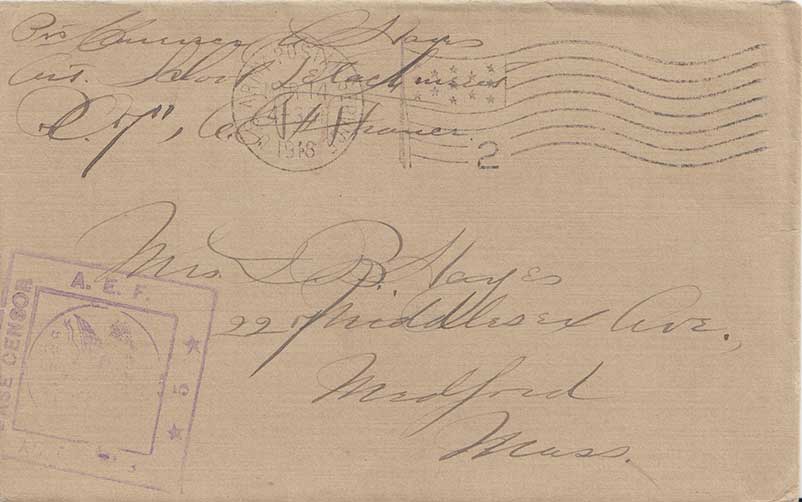 C. Hayes
Art. School Detachment
A.E.F. France.
U.S. ARMY POSTAL SERVICE
14
1918
2
Mrs. L. P. Hayes
22 Middlesex Ave.,
Medford
Mass.
A. E. F.
BASE CENSOR
5